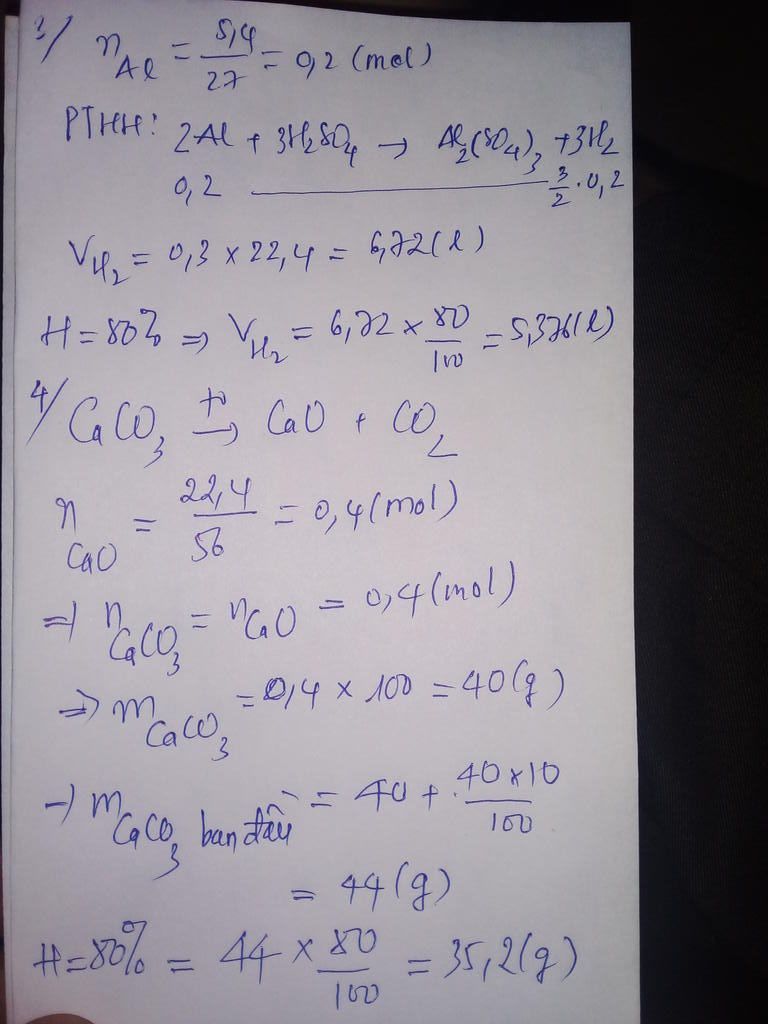 3/ n Al = 5,4/27 = 0,2 (mol)
PTHH: 2Al + 3H2SO4 → Al2(SO4)3 + 3H2
0,2 —— 3/2 . 0,2
V H2 = 0,3 x 22,4 = 6,72 (l)
H = 80% => V H2 = 6,72 x 80/100 = 5,376 (l)
4/ CaCO3 t° → CaO + CO2
n CaO = 22,4/56 = 0,4 (mol)
=> n CaCO3 = n CaO = 0,4 (mol)
=> m CaCO3 = 0,4 x 100 = 40 (g)
→ m CaCO3 ban đầu = 40 + 40x10/100
= 44 (g)
H = 80% = 44 x 80/100 = 35,2 (g)